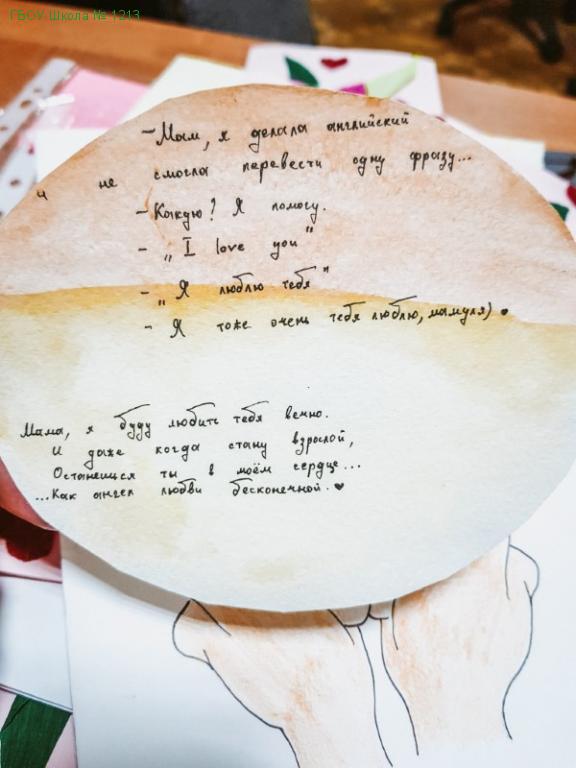 ГБОУ Школа № 1213
– Мам, я делала английский
и не смогла перевести одну фразу...
– Какую? Я помогу.
– „I love you"
– „Я люблю тебя"
– Я тоже очень тебя люблю, мамуля) ♥
Мама, я буду любить тебя вечно.
И даже когда стану взрослой,
Останешься ты в моём сердце...
...Как ангел любви бесконечной. ♥